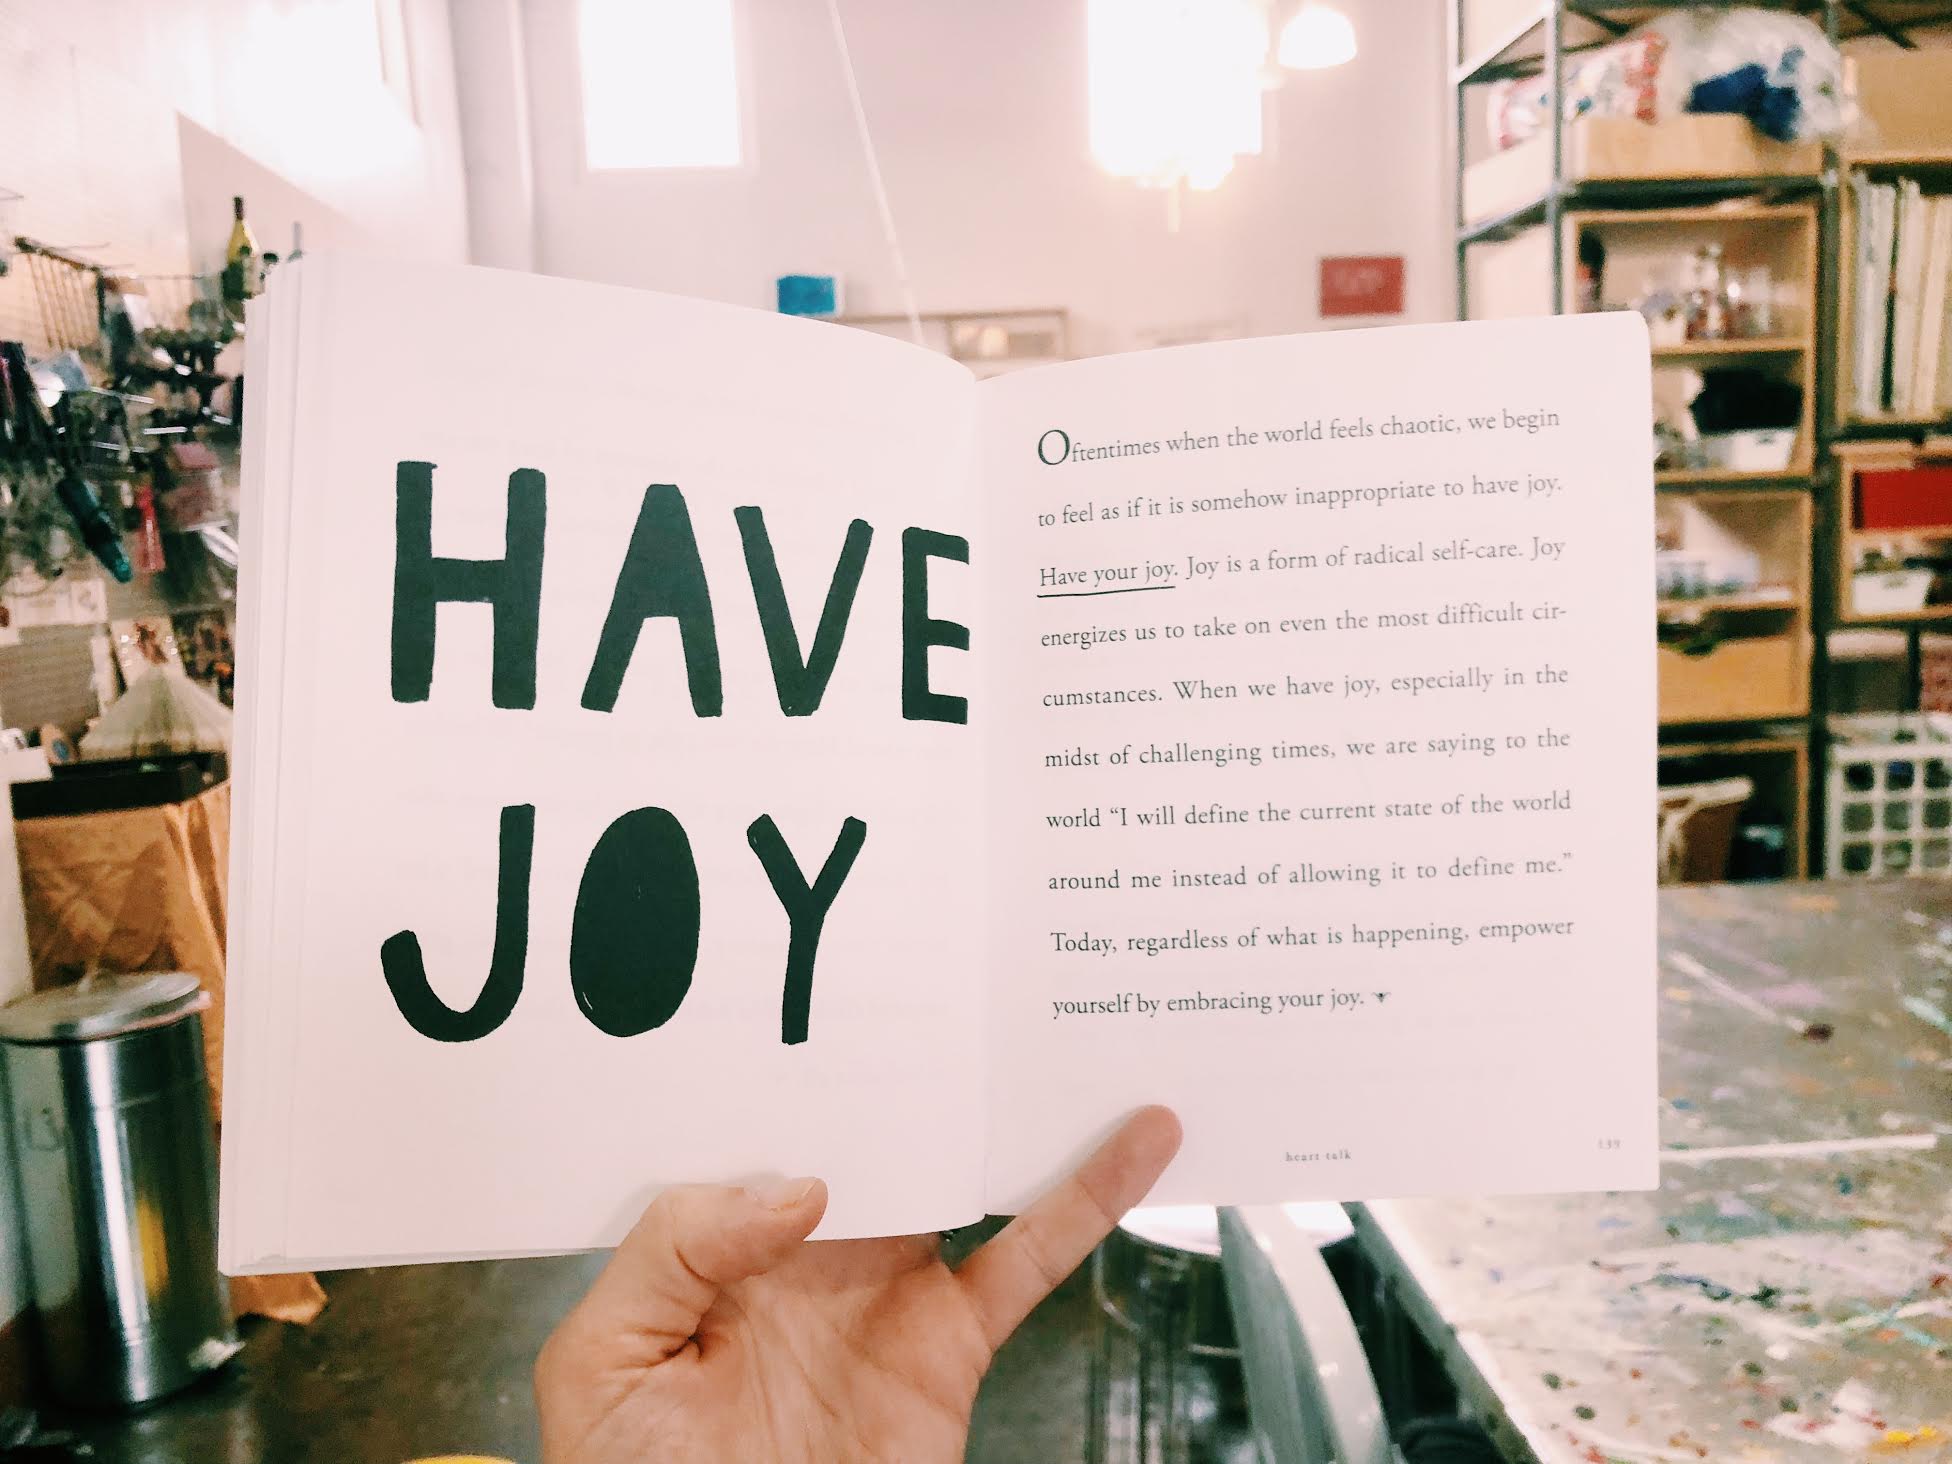 HAVE
JOY
Oftentimes when the world feels chaotic, we begin
to feel as if it is somehow inappropriate to have joy.
Have your joy. Joy is a form of radical self-care. Joy
energizes us to take on even the most difficult cir-
cumstances. When we have joy, especially in the
midst of challenging times, we are saying to the
world “I will define the current state of the world
around me instead of allowing it to define me.”
Today, regardless of what is happening, empower
yourself by embracing your joy.
heart talk
139